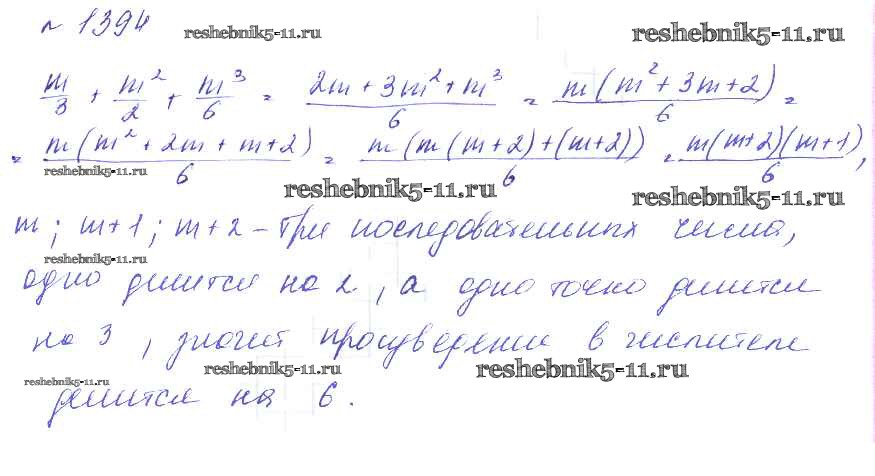 № 1394
reshebnik5-11.ru
reshebnik5-11.ru
m/3 + m²/2 + m³/6 = (2m + 3m² + m³)/6 = m(m² + 3m + 2)/6 =
= m(m² + 2m + m + 2)/6 = m(m(m+2) + (m+2))/6 = m(m+2)(m+1)/6,
reshebnik5-11.ru
reshebnik5-11.ru
reshebnik5-11.ru
m; m+1; m+2 – три последовательных числа,
reshebnik5-11.ru
одно делится на 2, а одно точно делится
на 3, значит произведение в числителе
reshebnik5-11.ru
reshebnik5-11.ru
reshebnik5-11.ru
делится на 6.